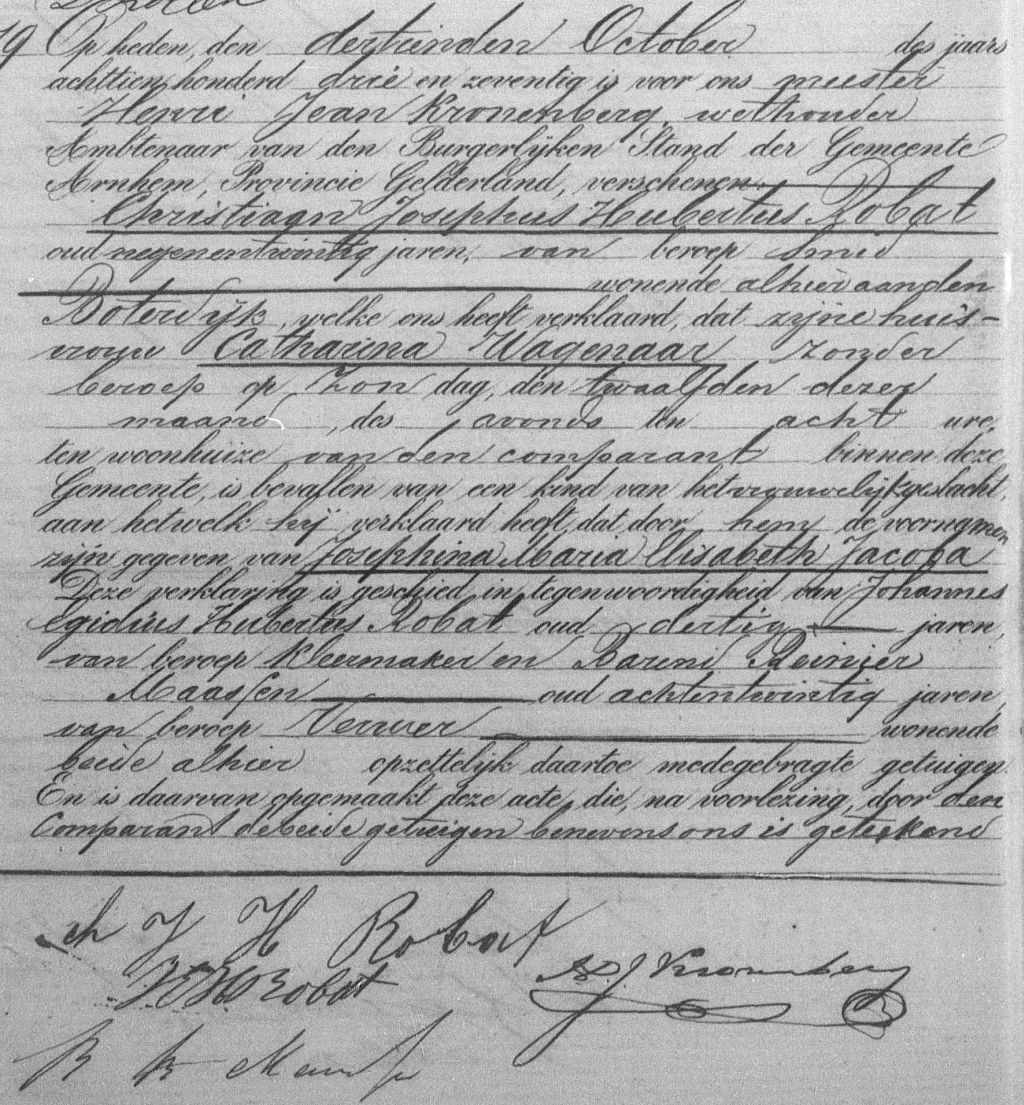 Op heden, den dertienden October des jaars
achttien honderd drie en zeventig is voor ons meester
Henri Jean Kronenberg, wethouder
Ambtenaar van den Burgerlijken Stand der Gemeente
Arnhem, Provincie Gelderland, verschenen
Christiaan Josephus Hubertus Robat
oud negenentwintig jaren, van beroep smid
wonende alhier aan den
Boterdijk, welke ons heeft verklaard, dat zijne huis-
vrouw Catharina Wagenaar zonder
beroep op Zon dag, den twaalfden dezer
maand, des avonds ten acht ure,
ten woonhuize van den comparant binnen deze
Gemeente, is bevallen van een kind van het vrouwelijk geslacht,
aan hetwelk hij verklaard heeft, dat door hem de voornamen
zijn gegeven van Josephina Maria Elisabeth Jacoba
Deze verklaring is geschied in tegenwoordigheid van Johannes
Egidius Hubertus Robat oud dertig jaren,
van beroep kleermaker en Barend Reinier
Maassen oud achtentwintig jaren
van beroep Verwer wonende
beide alhier opzettelijk daartoe medegebragte getuigen.
En is daarvan opgemaakt deze acte, die, na voorlezing, door den
Comparant de beide getuigen benevens ons is geteekend
ch J H Robat
J E H Robat
H J Kronenberg
B R Maassen